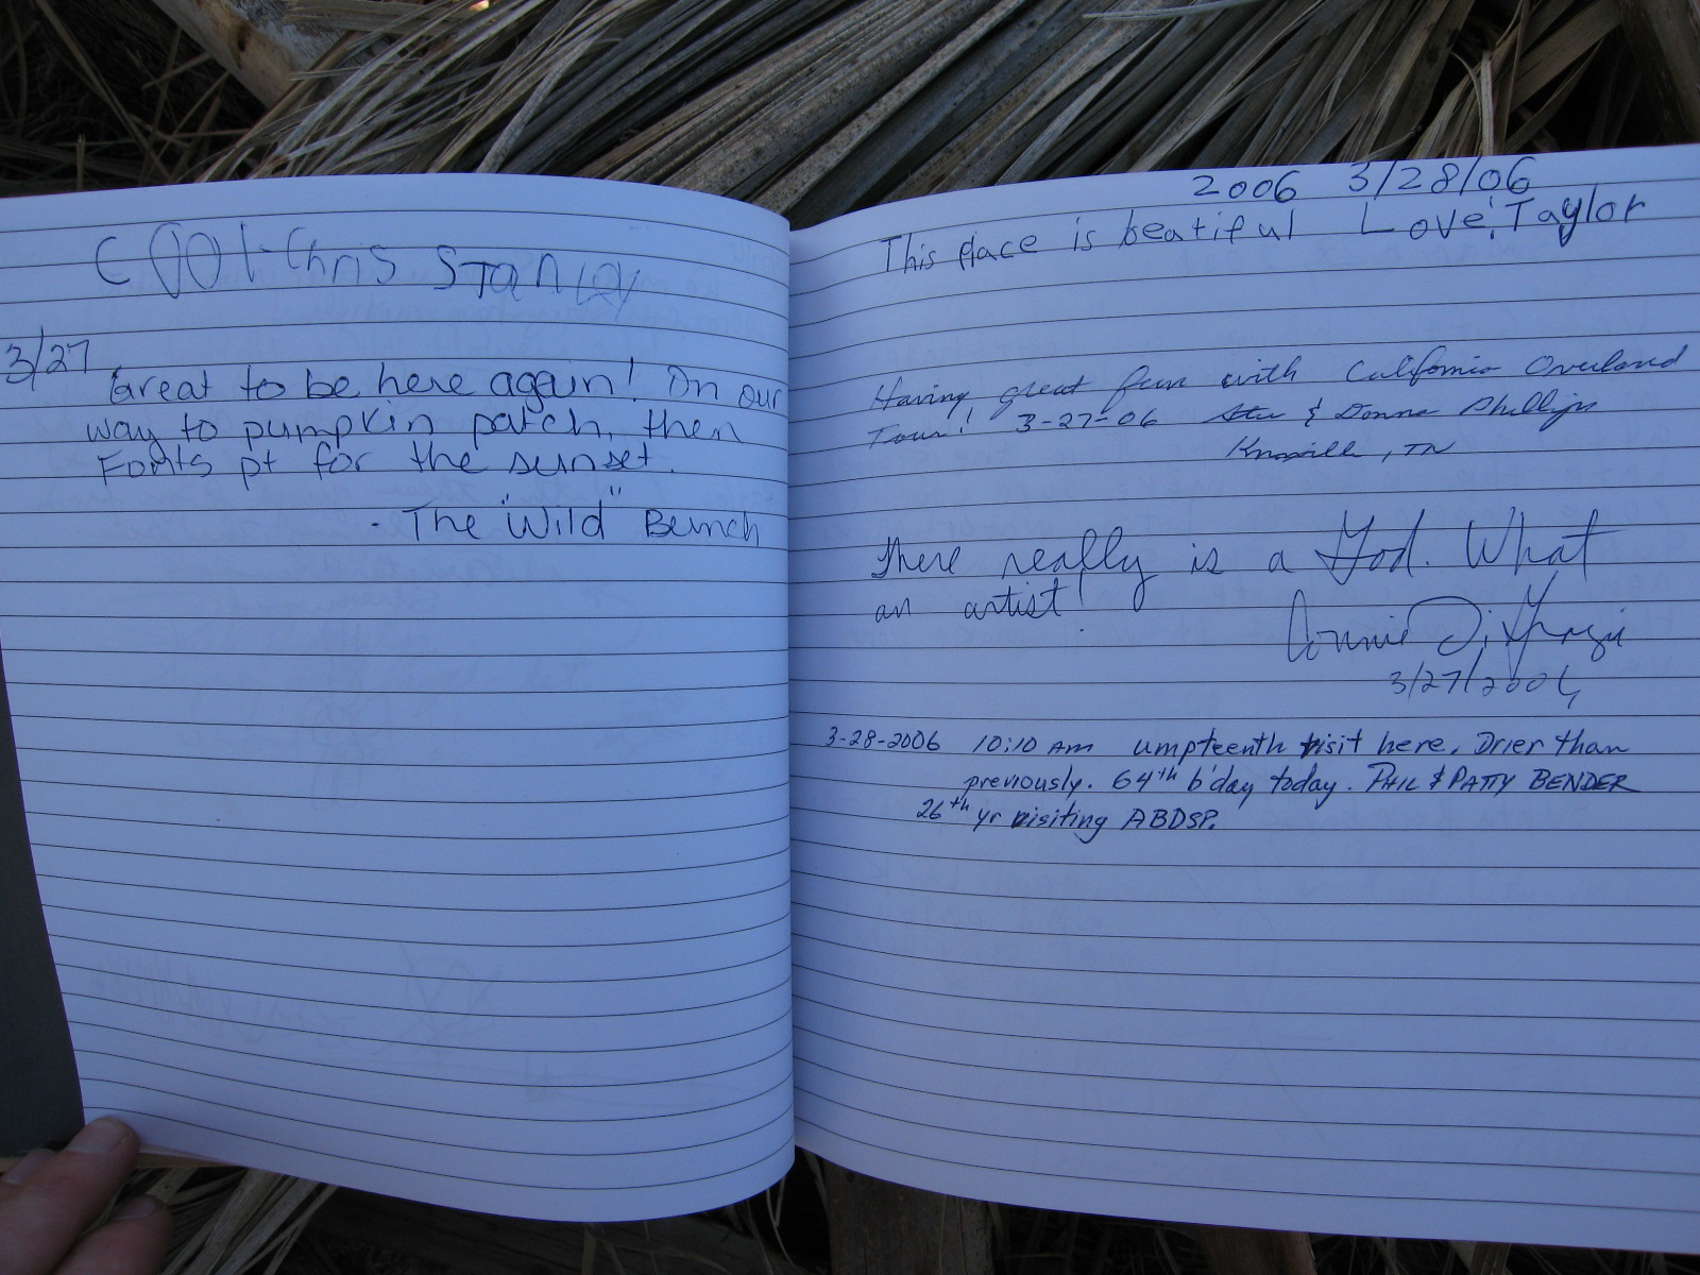 COOl-Chris Stanley
3/27
Great to be here again! On our
way to pumpkin patch, then
Fonts pt for the sunset.
- The "Wild" Bunch
2006 3/28/06
This place is beatiful Love, Taylor
Having great fun with California Overland
Tour! 3-27-06 & Donna Phillips
Knoxville, TN
There really is a God. What
an artist!
Connie
3/27/2006
3-28-2006 10:10 AM umpteenth visit here. Drier than
previously. 64th b'day today. PHIL & PATTY BENDER
26th yr visiting ABDSP.